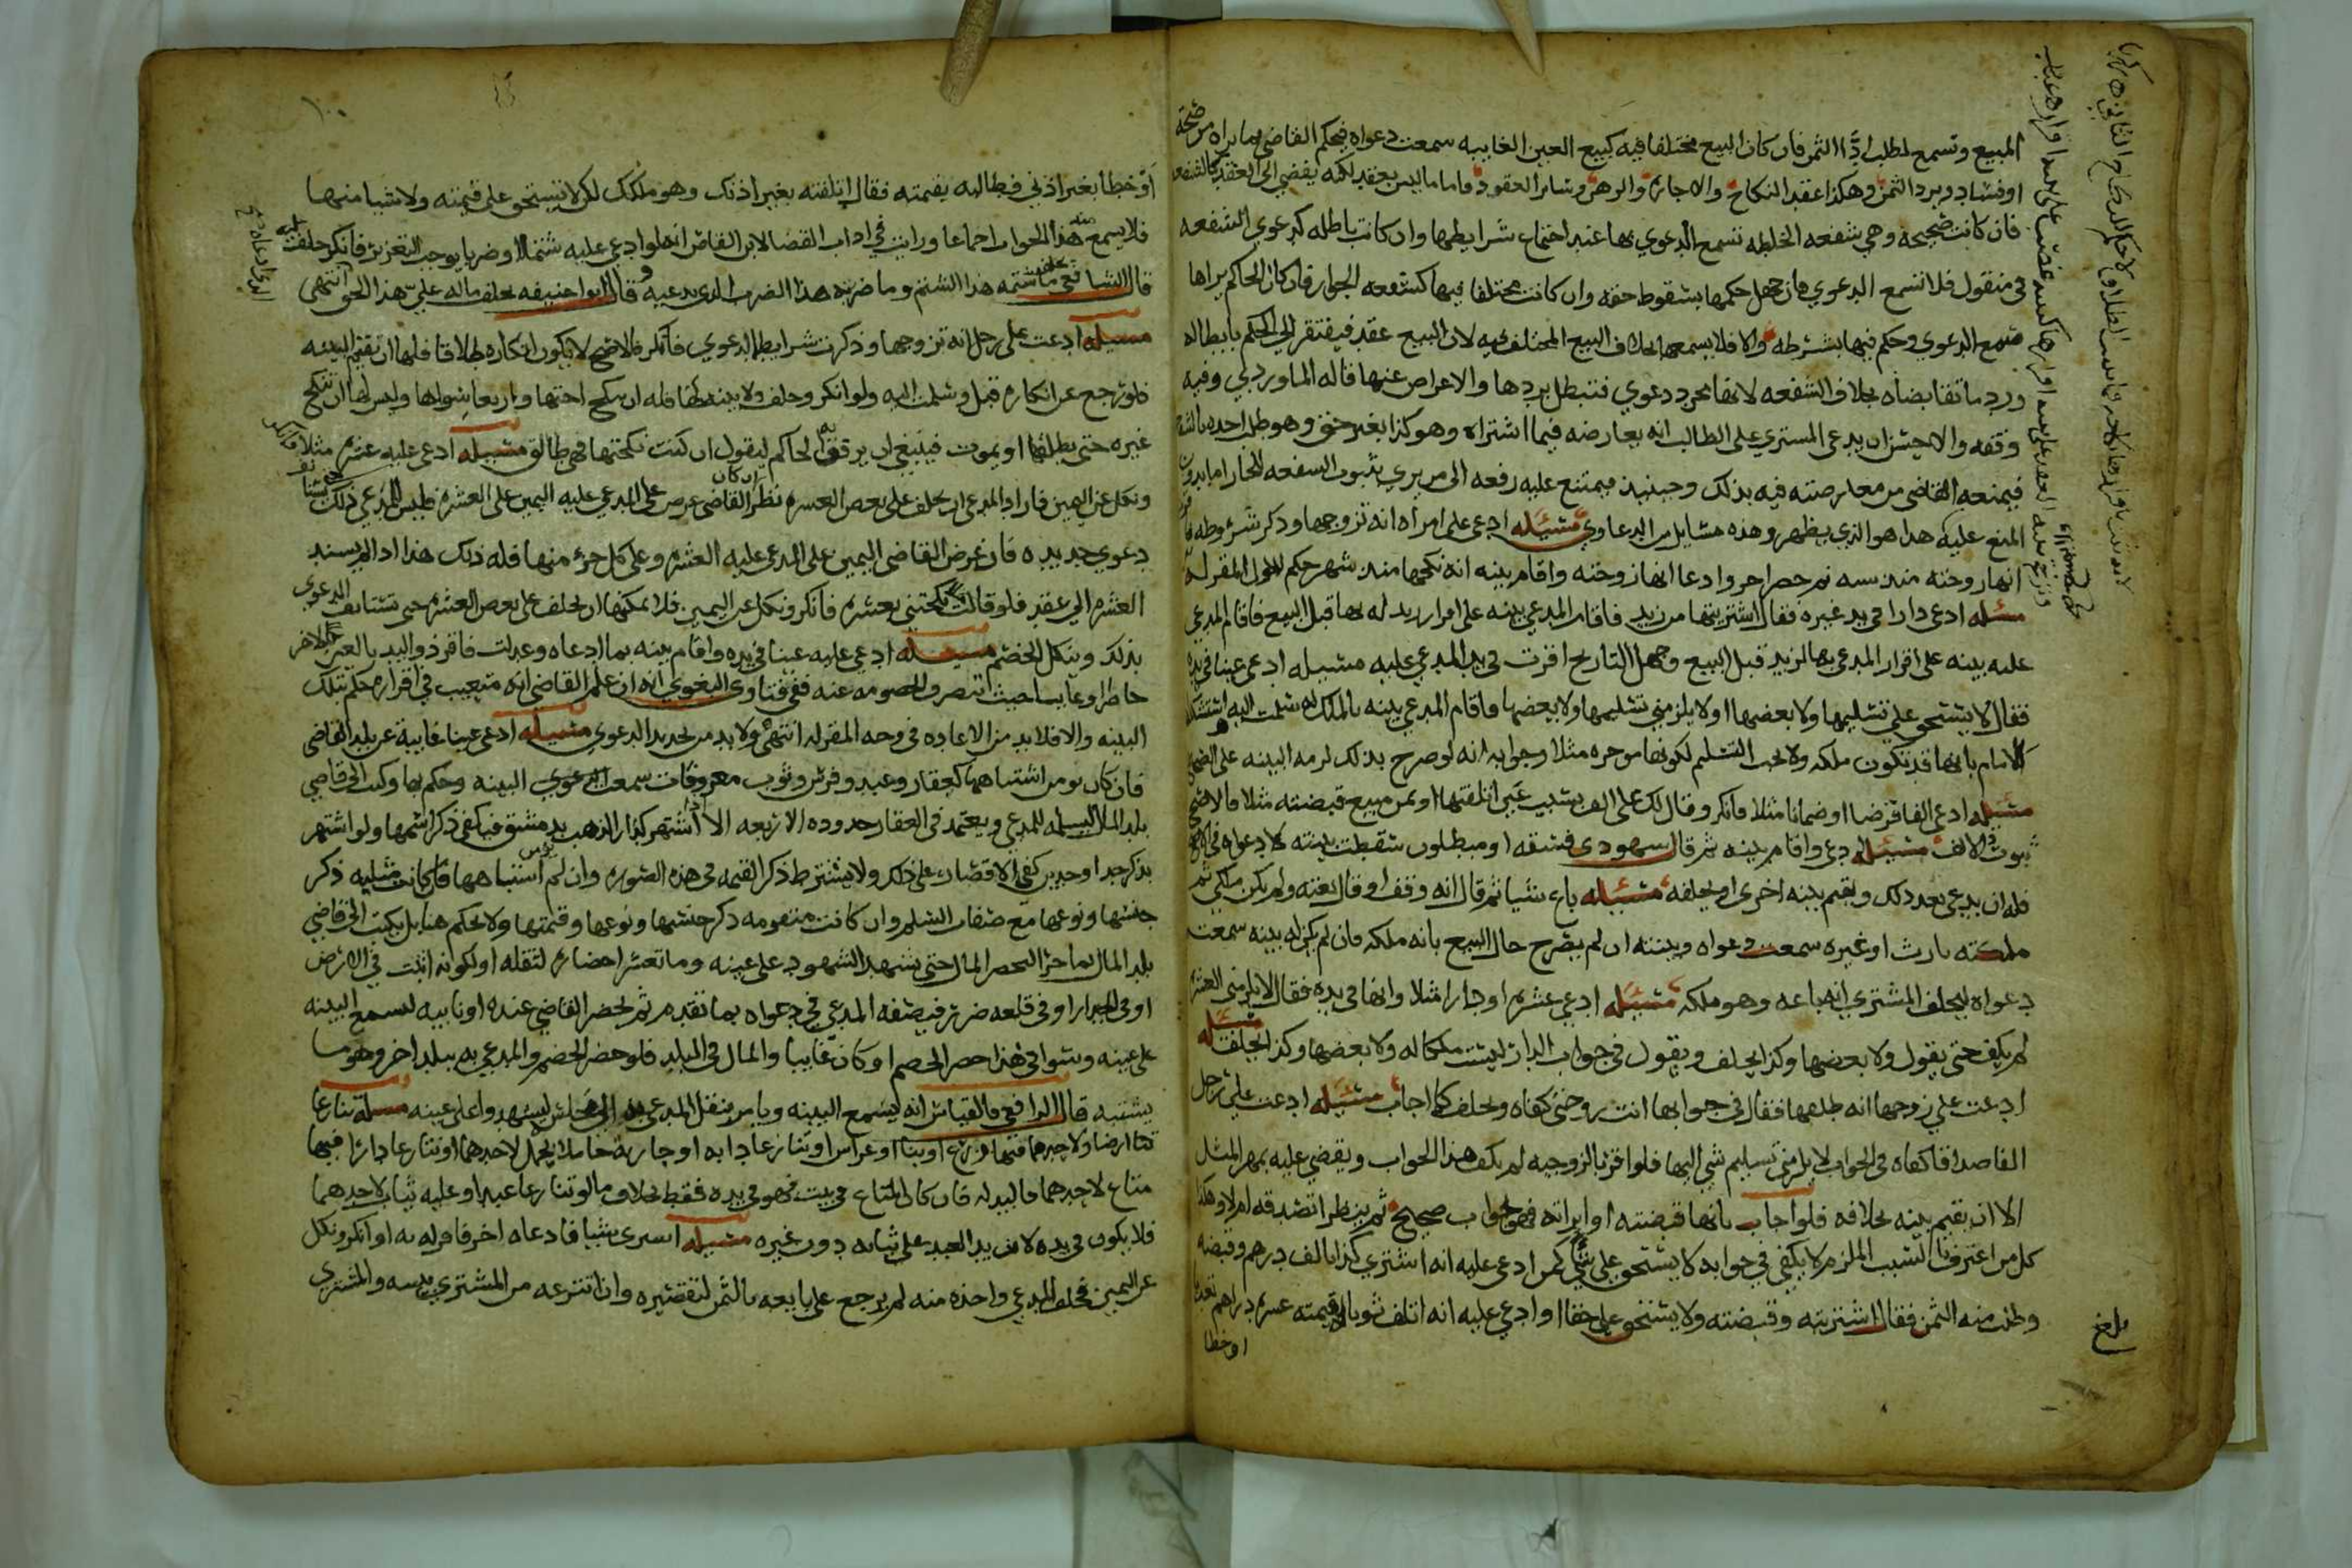 المبيع وتسمع لطلب ردّ الثمن فان كان البيع مختلفا فيه كبيع العين الغايبه سمعت دعواه فيحكم القاضي بما يراه من صحة
او فساد ويرد الثمن وهكذا عقد النكاح والاجاره والرهن وساير العقود واما ما ليس بعقد لكنه يفضي الى العقد كالشفعه
فان كانت صحيحه وهي شفعه الخليطه تسمع الدعوي بها عند اجتماع شرايطها وان كانت باطله كدعوي الشفعه
في منقول فلا تسمع الدعوي فان جهل حكمها سقوط حقه وان كانت مختلفا فيها كشفعه الجوار فان كان الحاكم يراها
سمع الدعوي وحكم فيها بشرطه والا فلا يسمعها بخلاف البيع المختلف فيه لان البيع عقد فيفتقر الى الحكم بابطاله
ورد ما تقابضاه بخلاف الشفعه لانها مجرد دعوي فتبطل بردها والاعراض عنها قاله الماوردي وفيه
وقفه والاحسن ان يدعي المشتري على الطالب انه يعارضه فيما اشتراه وهو كذا بغير حق وهو طلب اخذه بالشفعه
فيمنعه القاضي من معارضته فيه بذلك وحينيذ فيمتنع عليه رفعه الى من يري ثبوت الشفعه للجار اما بدون
المنع عليه هذا هو الذي يظهر وهذه مسايل من الدعاوي مسئله ادعى على امراه انه تزوجها وذكر شروطه
انها زوجته منذ سنه ثم حضر اخر وادعا انها زوجته واقام بينه انه نكحها منذ شهر حكم للاول المقر له
مسئله ادعى دارا في يد غيره فقال اشتريتها من زيد فاقام المدعي بينه على اقرار زيد له بها قبل البيع فاقام المدعي
عليه بينه على اقرار المدعي بها لزيد قبل البيع وجهل التاريخ اقرت في يد المدعي عليه مسئله ادعى عينا في يده
فقال لا يستحق علي تسليمها ولا بعضها او لا يلزمني تسليمها ولا بعضها فاقام المدعي بينه بالملك له سلمت اليه استشكله
الامام بانها قد تكون ملكه ولا يجب التسليم لكونها موجره مثلا وجوابه انه لو صرح بذلك لزمه البينه على الصحيح
مسئله ادعى الفا قرضا او ضمانا مثلا فانكر وقال لك علي الف بسبب عين اتلفتها او ثمن مبيع قبضته مثلا فالاصح
ثبوت الالف مسئله ادعى واقام بينه ثم قال شهودي فسقه او مبطلون سقطت بينته لا دعواه في الاصح
فله ان يدعي بعد ذلك ويقيم بينه اخرى او يحلفه مسئله باع شيا ثم قال انه وقف او قال بعته ولم يكن ملكي ثم
ملكته بارث او غيره سمعت دعواه وبينته ان لم يصرح حال البيع بانه ملكه فان لم يكن له بينه سمعت
دعواه ليحلف المشتري انه باعه وهو ملكه مسئله ادعى عشره او دارا مثلا وانها في يده فقال لا يلزمني العشره
لم يكف حتى يقول ولا بعضها وكذا يحلف ويقول في جواب الدار ليست ملكا له ولا بعضها وكذا الحلف مسئله
ادعت على زوجها انه طلقها فقال في جوابها انت زوجتي كفاه ويحلف كما اجاب مسئله ادعت على رجل
الفا صداقا كفاه في الجواب لا يلزمني تسليم شي اليها فلو اقر بالزوجيه لم يكف هذا الجواب ويقضي عليه بمهر المثل
الا ان يقيم بينه بخلافه فلو اجاب بانها قبضته او ابراته فهو جواب صحيح ثم ينظر اتصدقه ام لا وهكذا
كل من اعترف بالسبب الملزم لا يكفي في جوابه لا يستحق علي شي كمن ادعى عليه انه اشتري كذا بالف درهم وقبضه
وطلب منه الثمن فقال اشتريته وقبضته ولا يستحق علي حقا او ادعي عليه انه اتلف ثوبا له قيمته عشره دراهم تعديا
او خطا
بلغ
١٠٠
او خطا بغير اذني فطالبه بقيمته فقال اتلفته بغير اذنك وهو ملكك لكن لا تستحق علي قيمته ولا شيا منها
فلا يسمع منه هذا الجواب اجماعا ورايت في اداب القضا لابن القاص انه لو ادعي عليه شتما او ضربا يوجب التعزير فانكر حلف
قال الشافعي ما شتمه هذا الشتم وما ضربه هذا الضرب الذي يدعيه وقال ابو حنيفه يحلف ماله علي هذا الحق انتهى
مسئله ادعت على رجل انه تزوجها وذكرت شرايط الدعوي فانكر فالاصح لا يكون انكاره طلاقا فلها ان تقيم البينه
فلو رجع عن انكاره قبل وسلمت اليه ولو انكر وحلف ولا بينه لها فله ان ينكح اختها واربعا سواها وليس لها ان تنكح
غيره حتى يطلقها او يموت فينبغي ان يرفق به الحاكم ليقول ان كنت نكحتها فهي طالق مسئله ادعى عليه عشره مثلا فانكر
ونكل عن اليمين فاراد المدعي ان يحلف على بعض العشره نظر ان كان القاضي عرض على المدعي عليه اليمين على العشره فليس للمدعي ذلك
دعوي جديده فان عرض القاضي اليمين على المدعي عليه العشره وعلى كل جزء منها فله ذلك هذا اذا لم يسند
العشره الى عقد فلو قالت نكحتني بعشره فانكر ونكل عن اليمين فلا يمكنها ان تحلف على بعض العشره حتى تستانف الدعوى
بذلك وينكل الخصم مسئله ادعي عليه عينا في يده واقام بينه بما ادعاه وعدلت فاقر ذو اليد بالعين لاخر
حاضرا وغايبا حيث تنصرف الخصومه عنه ففي فتاوي البغوي انه ان علم القاضي انه متعنت في اقراره حكم بتلك
البينه والا فلا بد من الاعاده في وجه المقر له انتهى ولا بد من تجديد الدعوي مسئله ادعى عينا غايبة عن بلد القاضي
فان كان يومن اشتباهها كعقار وعبد وفرس وثوب معروفات سمعت الدعوي البينه وحكم بها وكتب الى قاضي
بلد المال ليسلمه للمدعي ويعتمد في العقار حدوده الاربعه الا اذا اشتهر كدار الذهب بدمشق فيكفي ذكر اسمها ولو اشتهر
بذكر حد او حدين كفي الاقتصار على ذلك ولا يشترط ذكر القيمه في هذه الصوره وان لم يومن اشتباهها فان كانت مثليه ذكر
جنسها ونوعها مع صفات السلم وان كانت متقومه ذكر جنسها ونوعها وقيمتها ولا يحكم هنا بل يكتب الى قاضي
بلد المال بما جرا ليحضر المال حتى يشهد الشهود على عينه وما تعسر احضاره لثقله او لكونه اثبت في الارض
او في الجدار او في قلعه ضرر فيصفه المدعي في دعواه بما تقدم ثم يحضر القاضي عنده او نايبه لتسمع البينه
على عينه وسوا في هذا حضر الخصم او كان غايبا والمال في البلد فلو حضر الخصم والمدعي به ببلد اخر وهو مما
يشتبه قال الرافعي فالقياس انه يسمع البينه ويامر بنقل المدعي به الى مجلسه ليشهدوا على عينه مسئله تنازعا
ارضا ولاحدهما فيها زرع او بنا او غراس او تنازعا دابه او جارية حاملا بحمل لاحدهما او تنازعا دارا فيها
متاع لاحدهما فاليد له فان كان المتاع في بيت فهو في يده فقط بخلاف ما لو تنازعا عبدا وعليه ثياب لاحدهما
فلا يكون في يده لان يد العبد على ثيابه دون غيره مسئله اشترى شيا فادعاه اخر فاقر له به او انكر ونكل
عن اليمين فحلف المدعي واخذه منه لم يرجع على بايعه بالثمن لتقصيره وان انتزعه من المشتري ببينه والمشتري